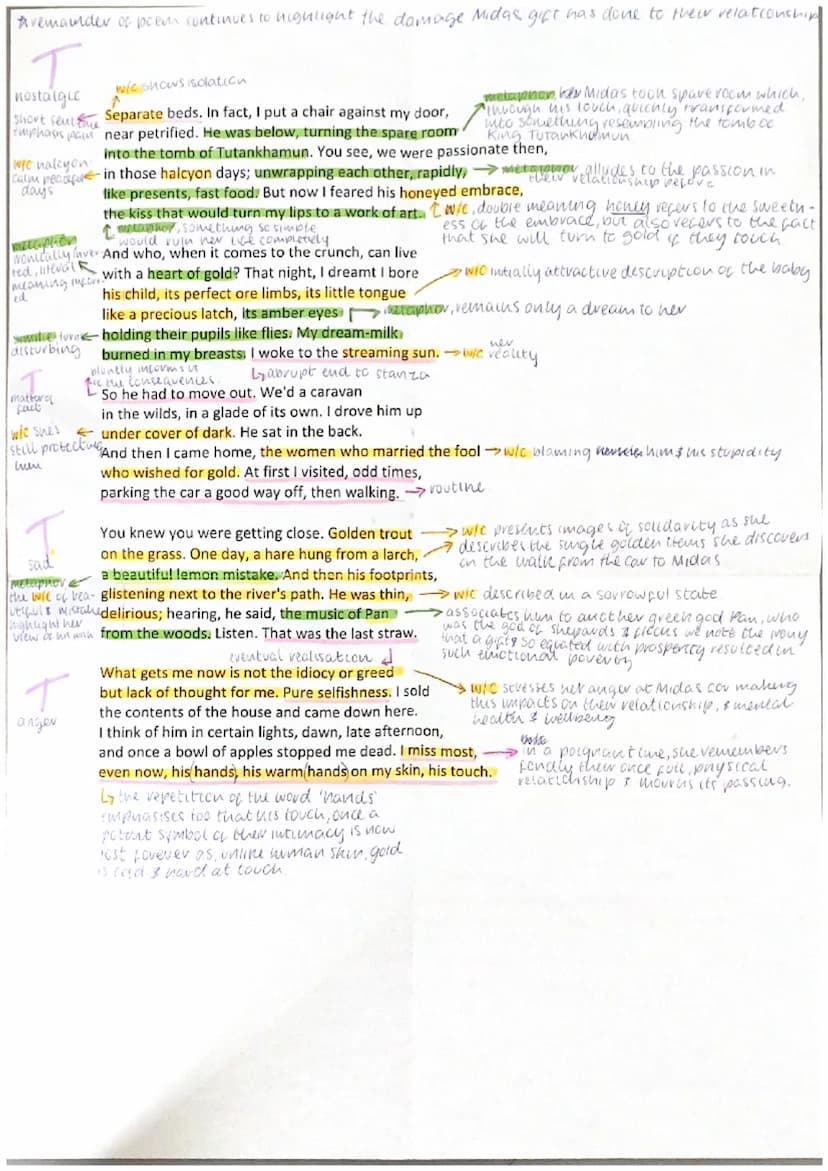 *remainder of poem continues to highlight the damage Midas gift has done to their relationship
T
nostalgic
w/c shows isolation
short sentence
emphasis pain
Separate beds. In fact, I put a chair against my door,
near petrified. He was below, turning the spare room
into the tomb of Tutankhamun. You see, we were passionate then,
in those halcyon days; unwrapping each other, rapidly,
like presents, fast food. But now I feared his honeyed embrace,
the kiss that would turn my lips to a work of art.
metaphor, her Midas took spare room which,
through his touch, quickly transformed
into something resembling the tomb of
King Tutankhamun
w/c halcyon
calm peaceful
days
metaphor alludes to the passion in
their relationship before
w/c, double meaning honey refers to the sweetn-
ess of the embrace, but also refers to the fact
that she will turn to gold if they touch
metaphor, something so simple
would ruin her life completely
And who, when it comes to the crunch, can live
with a heart of gold? That night, I dreamt I bore
his child, its perfect ore limbs, its little tongue
like a precious latch, its amber eyes
holding their pupils like flies. My dream-milk
burned in my breasts. I woke to the streaming sun.
metaphor
ironically inver
ted, literal
meaning
w/c initially attractive description of the baby
metaphor, remains only a dream to her
simile turns
disturbing
w/c her
reality
abrupt end to stanza
bluntly informs
the consequences.
T
matter of
fact
So he had to move out. We'd a caravan
in the wilds, in a glade of its own. I drove him up
under cover of dark. He sat in the back.
And then I came home, the women who married the fool
who wished for gold. At first I visited, odd times,
parking the car a good way off, then walking.
w/c she's
still protecting
him
w/c blaming him & his stupidity
routine
T
sad
You knew you were getting close. Golden trout
on the grass. One day, a hare hung from a larch,
a beautiful lemon mistake. And then his footprints,
glistening next to the river's path. He was thin,
delirious; hearing, he said, the music of Pan
from the woods. Listen. That was the last straw.
w/c presents images of solidarity as she
describes the single golden items she discovers
on the walk from the car to Midas
metaphor
the w/c of bea-
utiful & mistake
highlight her
view of
w/c described in a sorrowful state
associates him to another greek god Pan, who
was the god of shepards & flocks we note the irony
that a gift so equated with prosperity resulted in
such emotional poverty
eventual realisation
T
anger
What gets me now is not the idiocy or greed
but lack of thought for me. Pure selfishness. I sold
the contents of the house and came down here.
I think of him in certain lights, dawn, late afternoon,
and once a bowl of apples stopped me dead. I miss most,
even now, his hands, his warm hands on my skin, his touch.
w/c stresses her anger at Midas for making
this impacts on their relationship, & mental
health & wellbeing
in a poignant line, she remembers
fondly their once full, physical
relationship & mourns its passing.
the repetition of the word 'hands'
emphasises too that his touch, once a
potent symbol of their intimacy is now
lost forever as, unlike human skin, gold
is cold & hard at touch.